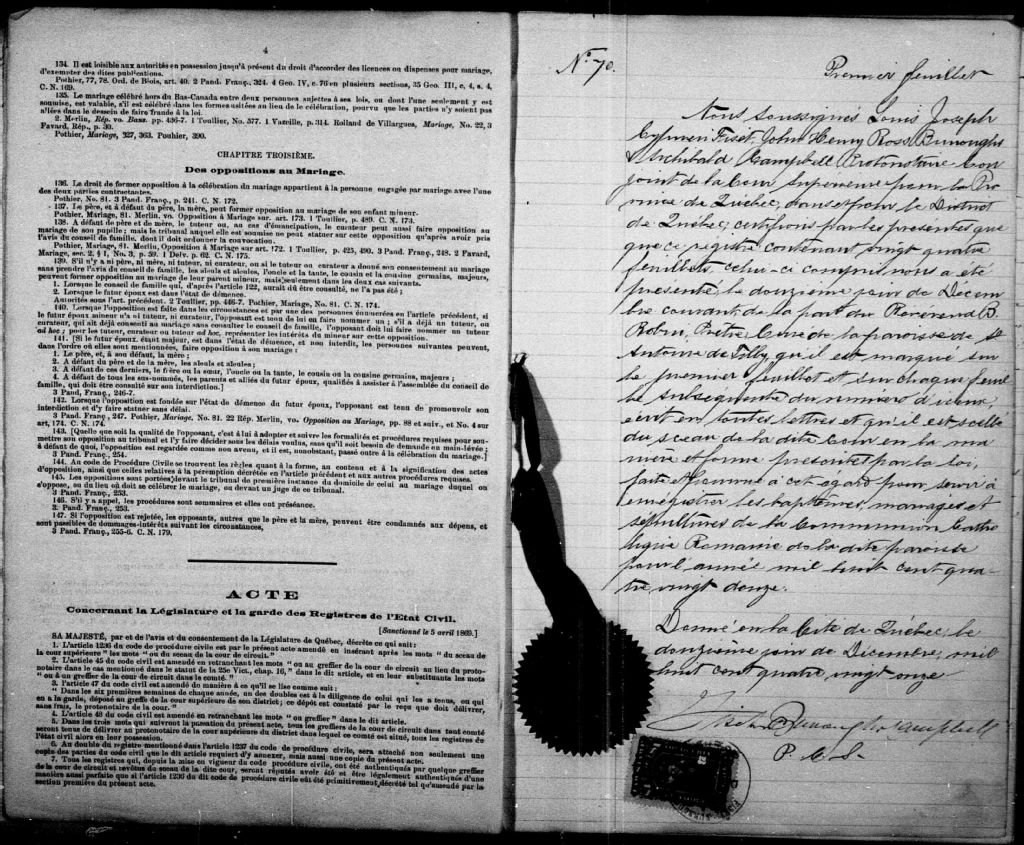 4
134. Il est loisible aux autorités en possession jusqu'à présent du droit d'accorder des licences ou dispenses pour mariage,
d'exempter des dites publications.
Pothier, 77, 78. Ord. de Blois, art. 40. 2 Pand. Franç., 324. 4 Geo. IV, c. 76 en plusieurs sections, 35 Geo. III, c. 4, s. 4,
C. N. 169.
135. Le mariage célébré hors du Bas-Canada entre deux personnes sujettes à ses lois, ou dont l'une seulement y est
soumise, est valable, s'il est célébré dans les formes usitées au lieu de la célébration, pourvu que les parties n'y soient pas
allées dans le dessein de faire fraude à la loi.
2. Merlin, Rép. vo. Bans. pp. 436-7. 1 Toullier, No. 577. 1 Vazeille, p. 314. Rolland de Villargues, Mariage, No. 22, 3
Favard, Rép., p. 30.
Pothier, Mariage, 327, 363. Pouhier, 390.
CHAPITRE TROISIÈME.
Des oppositions au Mariage.
136. Le droit de former opposition à la célébration du mariage appartient à la personne engagée par mariage avec l'une
des deux parties contractantes.
Pothier, No. 81. 3 Pand. Franç., p. 241. C. N. 172.
137. Le père, et à défaut du père, la mère, peut former opposition au mariage de son enfant mineur.
Pothier, Mariage, 81. Merlin, vo. Opposition à Mariage sur art. 173. 1 Toullier, p. 489. C. N. 173.
138. A défaut de père et de mère, le tuteur ou, au cas d'émancipation, le curateur peut aussi faire opposition au
mariage de son pupille; mais le tribunal auquel elle est soumise ne peut statuer sur cette opposition qu'après avoir pris
l'avis du conseil de famille, dont il doit ordonner la convocation.
Pothier, Mariage, 81. Merlin, Opposition à Mariage sur art. 172. 1 Toullier, p. 425, 490. 3 Pand. Franç., 248. 2 Favard,
Mariage, sec. 2, § 1, No. 3, p. 59. 1 Delv. p. 62. C. N. 175.
139. S'il n'y a ni père, ni mère, ni tuteur, ni curateur, ou si le tuteur ou curateur a donné son consentement au mariage
sans prendre l'avis du conseil de famille, les aïeuls et aïeules, l'oncle et la tante, le cousin et la cousine germains, majeurs,
peuvent former opposition au mariage de leur parent mineur, mais seulement dans les deux cas suivants.
1. Lorsque le conseil de famille qui, d'après l'article 122, aurait dû être consulté, ne l'a pas été;
2. Lorsque le futur époux est dans l'état de démence.
Autorités sous l'art. précédent. 2 Toullier, pp. 446-7. Pothier, Mariage, No. 81. C. N. 174.
140. Lorsque l'opposition est faite dans les circonstances et par une des personnes énumérées en l'article précédent, si
le futur époux mineur n'a ni tuteur, ni curateur, l'opposant est tenu de lui en faire nommer un; s'il a déjà un tuteur, ou
curateur, qui ait déjà consenti au mariage sans consulter le conseil de famille, l'opposant doit lui faire nommer un tuteur
ad hoc; pour les tuteur, curateur ou tuteur ad hoc, représenter les intérêts du mineur sur cette opposition.
141. [Si le futur époux, étant majeur, est dans l'état de démence, et non interdit, les personnes suivantes peuvent,
dans l'ordre où elles sont mentionnées, faire opposition à son mariage:
1. Le père, et, à son défaut, la mère;
2. A défaut du père et de la mère, les aïeuls et aïeules;
3. A défaut de ces derniers, le frère ou la sœur, l'oncle ou la tante, le cousin ou la cousine germains, majeurs;
4. A défaut de tous les sus-nommés, les parents et alliés du futur époux, qualifiés à assister à l'assemblée du conseil de
famille, qui doit être consulté sur son interdiction.]
3 Pand. Franç., 246-7.
142. Lorsque l'opposition est fondée sur l'état de démence du futur époux, l'opposant est tenu de promouvoir son
interdiction et d'y faire statuer sans délai.
3 Pand. Franç., 247. Pothier, Mariage. No. 81. 22 Rép. Merlin, vo. Opposition au Mariage, pp. 88 et suiv., et No. 4 sur
art. 174. C. N. 174.
143. [Quelle que soit la qualité de l'opposant, c'est à lui à adopter et suivre les formalités et procédures requises pour sou-
mettre son opposition au tribunal et l'y faire décider sous les délais voulus, sans qu'il soit besoin de demande en main-levée;
à défaut de quoi, l'opposition est regardée comme non avenu, et il est, nonobstant, passé outre à la célébration du mariage.]
3 Pand. Franç., 254.
144. Au code de Procédure Civile se trouvent les règles quant à la forme, au contenu et à la signification des actes
d'opposition, ainsi que celles relatives à la péremption décrétée en l'article précédent et aux autres procédures requises.
145. Les oppositions sont portées devant le tribunal de première instance du domicile de celui au mariage duquel on
s'oppose, ou du lieu où doit se célébrer le mariage, ou devant un juge de ce tribunal.
3 Pand. Franç., 253.
146. S'il y a appel, les procédures sont sommaires et elles ont préséance.
3. Pand. Franç., 253.
147. Si l'opposition est rejetée, les opposants, autres que le père et la mère, peuvent être condamnés aux dépens, et
sont passibles de dommages-intérêts suivant les circonstances,
3 Pand. Franç., 255-6. C. N. 179.
ACTE
Concernant la Législature et la garde des Registres de l'Etat Civil.
[Sanctionné le 5 avril 1869.]
SA MAJESTÉ, par et de l'avis et du consentement de la Législature de Québec, décrète ce qui suit:
1. L'article 1236 du code de procédure civile est par le présent acte amendé en insérant après les mots "du sceau de
la cour supérieure" les mots "ou du sceau de la cour de circuit."
2. L'article 45 du code civil est amendé en retranchant les mots "ou au greffier de la cour de circuit au lieu du proto-
notaire dans le cas mentionné dans le statut de la 25e Vict., chap. 16," dans le dit article, et en leur substituant les mots
"ou à un greffier de la cour de circuit dans le comté."
3. l'article 47 du code civil est amendé de manière à ce qu'il se lise comme suit:
"Dans les six premières semaines de chaque année, un des doubles est à la diligence de celui qui les a tenus, ou
en a la garde, déposé au greffe de la cour supérieure de son district; ce dépôt est constaté par le reçu que doit délivrer,
sans frais, le protonotaire de la cour."
4. L'article 48 du code civil est amendé en retranchant les mots "ou greffier" dans le dit article.
5. Dans les trois mois qui suivront la passation du présent acte, tous les greffiers de la cour de circuit dans tout comté
seront tenus de délivrer au protonotaire de la cour supérieure du district dans lequel ce comté est situé, tous les registres de
l'état civil alors en leur possession.
6. Au double du registre mentionné dans l'article 1237 du code de procédure civile, sera attaché non seulement une
copie des parties du code civil que le dit article requiert d'y annexer, mais aussi une copie du présent acte.
7. Tous les registres qui, depuis la mise en vigueur du code procédure civile, ont été authentiqués par quelque greffier
de la cour de circuit et revêtus du sceau de la dite cour, seront réputés avoir été et être légalement authentiqués d'une
manière aussi parfaite que si l'article 1236 du dit code de procédure civile eût été primitivement décrété tel qu'amendé par la
section première du présent acte.
No. 70.
Premier feuillet
Nous soussignés Louis Joseph
Cyprien Fiset, John Henry Ross Burroughs
& Archibald Campbell Protonotaire Con
joint de la Cour Supérieure pour la Pro
vince de Québec, dans et pour le District
de Québec, certifions par les présentes que
que ce registre contenant vingt quatre
feuillets, celui-ci compris nous a été
présenté, le douzième jour de Décem
bre courant de la part du Révérend D.
Robin, Prêtre, Curé de la paroisse de St
Antoine de Tilly, qu'il est marqué sur
le premier feuillet et sur chaque feuil
let subséquent du numéro d'icelui,
écrit en toutes lettres et qu'il est scellé
du sceau de la dite Cour en la ma
nière et forme prescrite par la loi,
faite et comme à cet égard pour servir à
enregistrer les baptêmes, mariages et
sépultures de la Communion Catho
lique Romaine de la dite paroisse
pour l'année mil huit cent qua-
tre vingt douze.
Donné en la Cité de Québec, le
douzième jour de Décembre, mil
huit cent quatre vingt onze
Fiset Burroughs Campbell
P. C. S.